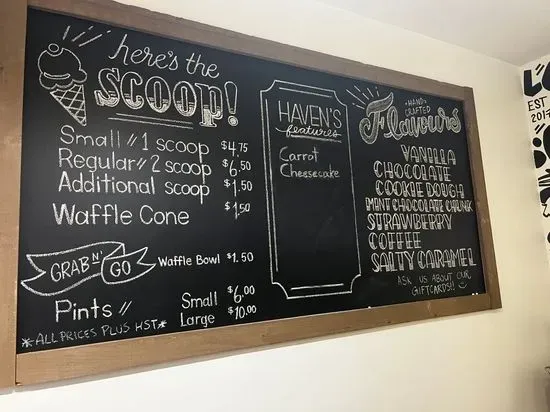 here's the
SCOOP!
Small // 1 scoop $4.75
Regular // 2 scoop $6.50
Additional scoop $1.50
Waffle Cone $1.50
GRAB N' GO
Waffle Bowl $1.50
Pints // Small $6.00
Large $10.00
*ALL PRICES PLUS HST*
HAVEN'S
features
Carrot
Cheesecake
HAND CRAFTED
Flavours
VANILLA
CHOCOLATE
COOKIE DOUGH
MINT CHOCOLATE CHUNK
STRAWBERRY
COFFEE
SALTY CARAMEL
ASK US ABOUT OUR
GIFTCARDS!!
EST
2017